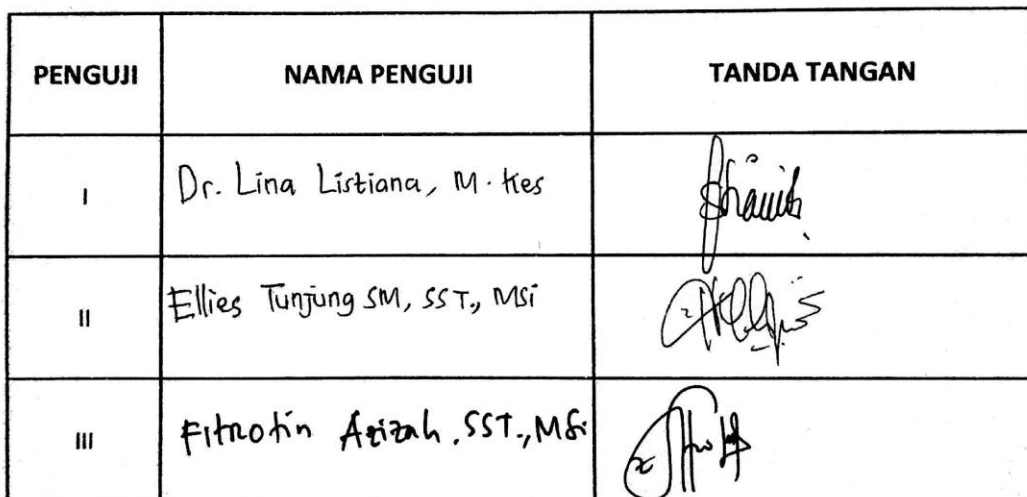 PENGUJI NAMA PENGUJI TANDA TANGAN
I Dr. Lina Listiana, M.Kes
II Ellies Tunjung SM, SST., MSi
III Fitrotin Azizah, SST., MSi